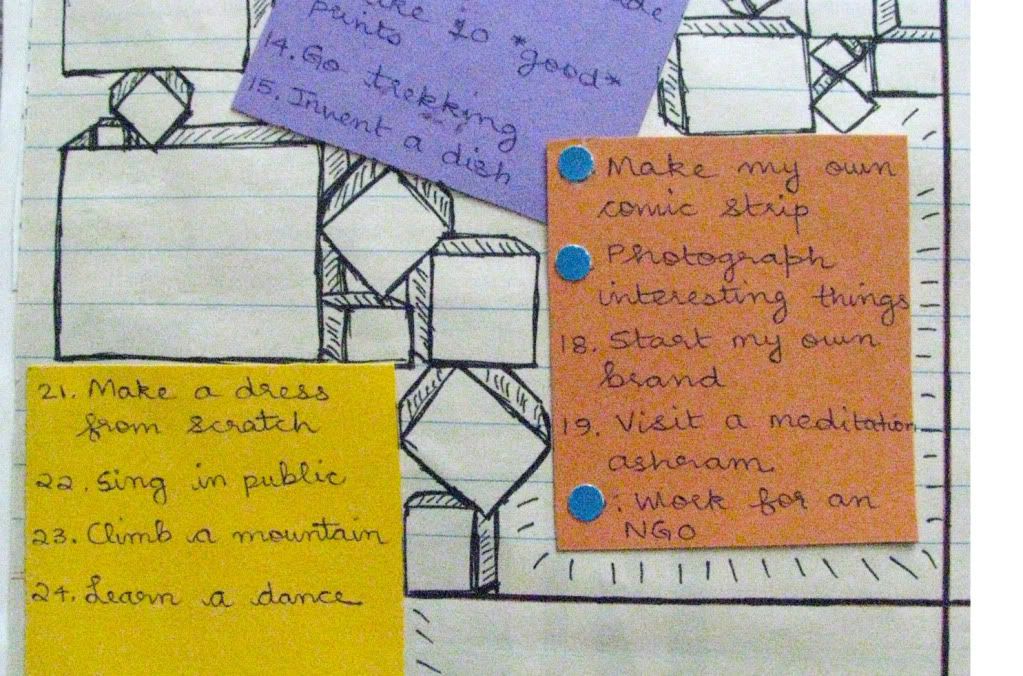 10 *good*
14. Go trekking
15. Invent a dish
Make my own
comic strip
Photograph
interesting things
18. Start my own
brand
19. Visit a meditation
ashram
: Work for an
NGO
21. Make a dress
from scratch
22. Sing in public
23. Climb a mountain
24. Learn a dance